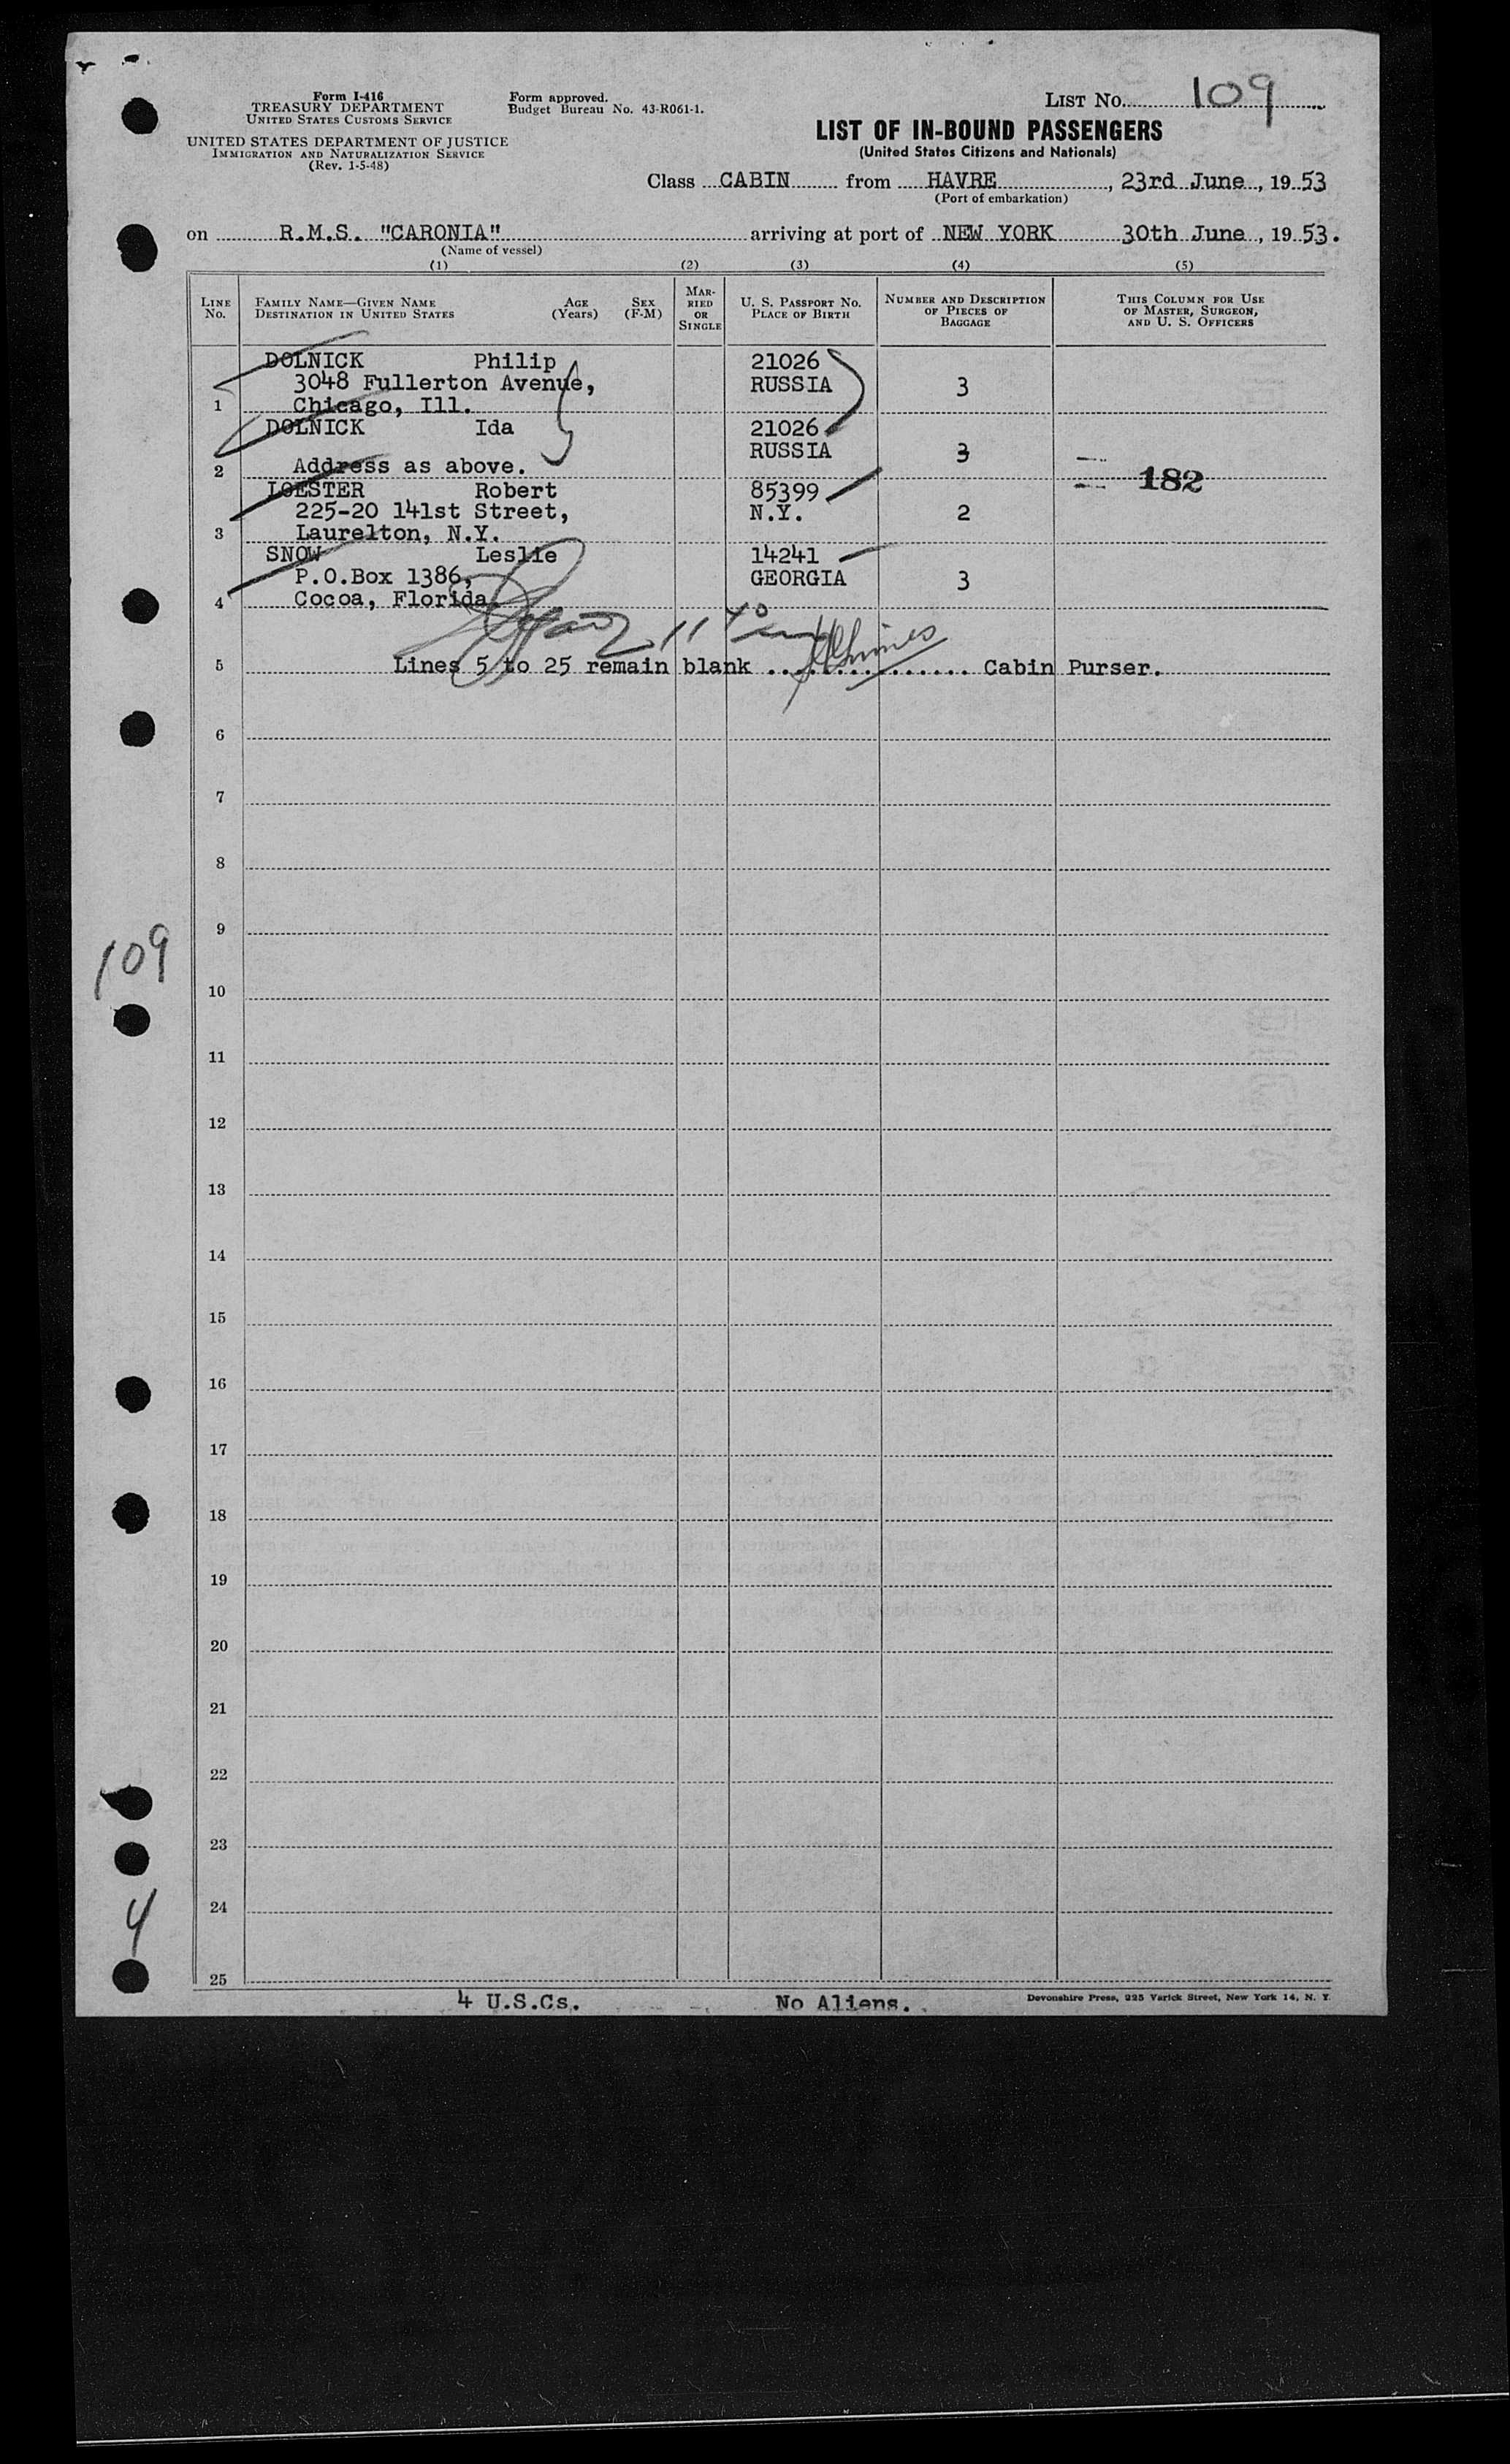 Form I-416
TREASURY DEPARTMENT
UNITED STATES CUSTOMS SERVICE
UNITED STATES DEPARTMENT OF JUSTICE
IMMIGRATION AND NATURALIZATION SERVICE
(Rev. 1-5-48)
Form approved.
Budget Bureau No. 43-R061-1.
LIST NO. 109
LIST OF IN-BOUND PASSENGERS
(United States Citizens and Nationals)
Class CABIN from HAVRE, 23rd June, 1953
(Port of embarkation)
on R.M.S. "CARONIA" arriving at port of NEW YORK 30th June, 1953.
(Name of vessel)
(1) (2) (3) (4) (5)
LINE NO. FAMILY NAME—GIVEN NAME DESTINATION IN UNITED STATES AGE (Years) SEX (F-M) MARRIED OR SINGLE U. S. PASSPORT NO. PLACE OF BIRTH NUMBER AND DESCRIPTION OF PIECES OF BAGGAGE THIS COLUMN FOR USE OF MASTER, SURGEON, AND U. S. OFFICERS
DOLNICK Philip 21026
3048 Fullerton Avenue, RUSSIA 3
1 Chicago, Ill.
DOLNICK Ida 21026
RUSSIA 3
2 Address as above.
182
LOESTER Robert 85399
225-20 141st Street, N.Y. 2
3 Laurelton, N.Y.
SNOW Leslie 14241
P.O.Box 1386, GEORGIA 3
4 Cocoa, Florida.
5 Lines 5 to 25 remain blank ................ Cabin Purser.
6
7
8
9
109
10
11
12
13
14
15
16
17
18
19
20
21
22
23
24
4
25
4 U.S.Cs. No Aliens.
Devonshire Press, 225 Varick Street, New York 14, N. Y.